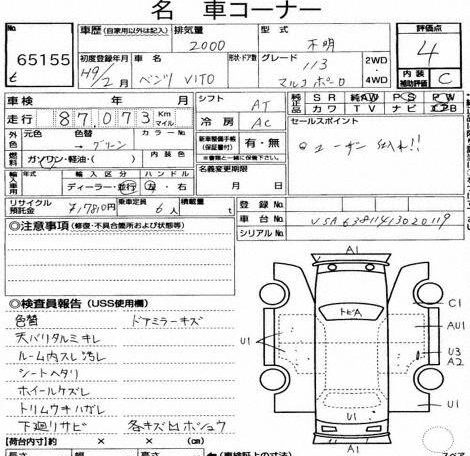 名 車コーナー
No
65155
車歴 (自家用以外は記入) 排気量 型式
2000 不明
初度登録年月 車名 形状・ドア数 グレード
H9/2月 ベンツ VITO 113 マルコポーロ
2WD
4WD
評価点
4
内装補助評価 C
車検 年 月
走行 87,073 Km マイル
外色 元色 色替 カラーNo
→ グリーン
燃料 ガソリン・軽油・( ) 内装色
輸入車用 輸入区分 ハンドル
ディーラー・並行 左・右
リサイクル預託金 ¥17810円 乗車定員 6人 積載量 t
シフト AT
冷房 AC
新車整備手帳(保証書付) 有・無
※書類と一緒に保管下さい。
名義変更期限
月 日
純正品 SR AW PS PW
カワ TV ナビ エアB
セールスポイント
◎ユーザー仕入れ!!
登録No
車台No VSA63811413020119
シリアルNo
◎注意事項 (修復・不具合箇所および状態等)
◎検査員報告 (USS使用欄)
色替 ドアミラーキズ
天バリタルミキレ
ルーム内スレ汚レ
シートヘタリ
ホイールケズレ
トリムウキハガレ
下廻リサビ 各キズ凹ホシュウ
【荷台内寸】 約 × × (cm)
長さ 幅 高さ
A1
C1
AU1
U1
U3
A2
U1
U1
A1